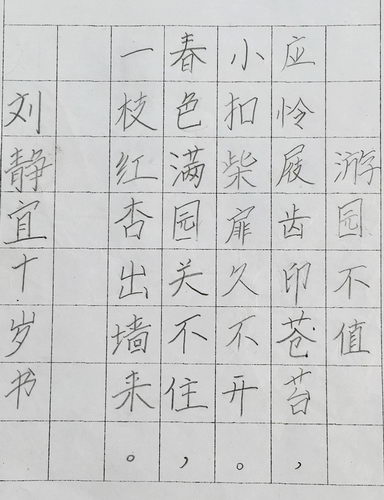 游园不值
应怜屐齿印苍苔,
小扣柴扉久不开。
春色满园关不住,
一枝红杏出墙来。
刘静宜十岁书